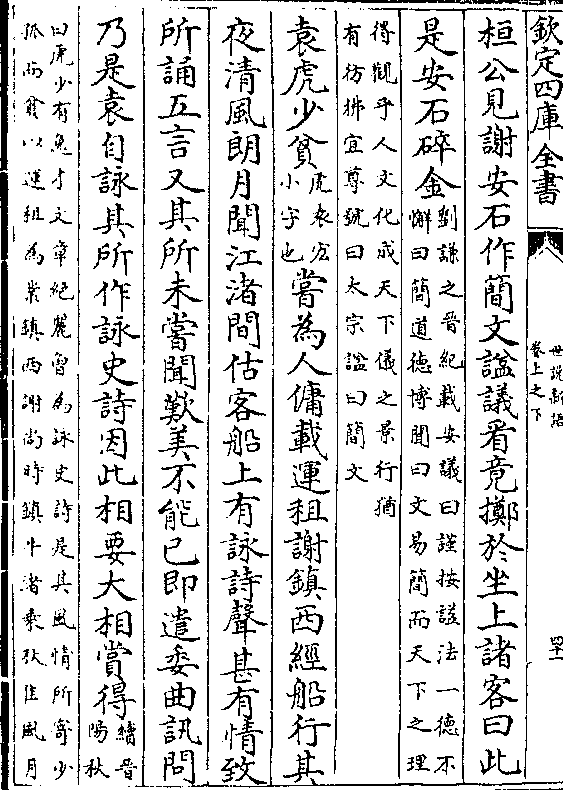 欽定四庫全書
世說新語
卷上之下
桓公見謝安石作簡文諡議看竟擲於坐上諸客曰此
是安石碎金
劉謙之晉紀載安議曰謹按諡法一德不
懈曰簡道德博聞曰文易簡而天下之理
得觀乎人文化成天下儀之景行猶
有彷彿宜尊號曰太宗諡曰簡文
袁虎少貧
虎袁宏
小字也
嘗為人傭載運租謝鎮西經船行其
夜清風朗月聞江渚間估客船上有詠詩聲甚有情致
所誦五言又其所未嘗聞歎美不能已即遣委曲訊問
乃是袁自詠其所作詠史詩因此相要大相賞得
續晉
陽秋
曰虎少有逸才文章絕麗曾為詠史詩是其風情所寄少
孤而貧以運租為業鎮西謝尚時鎮牛渚乘秋佳風月